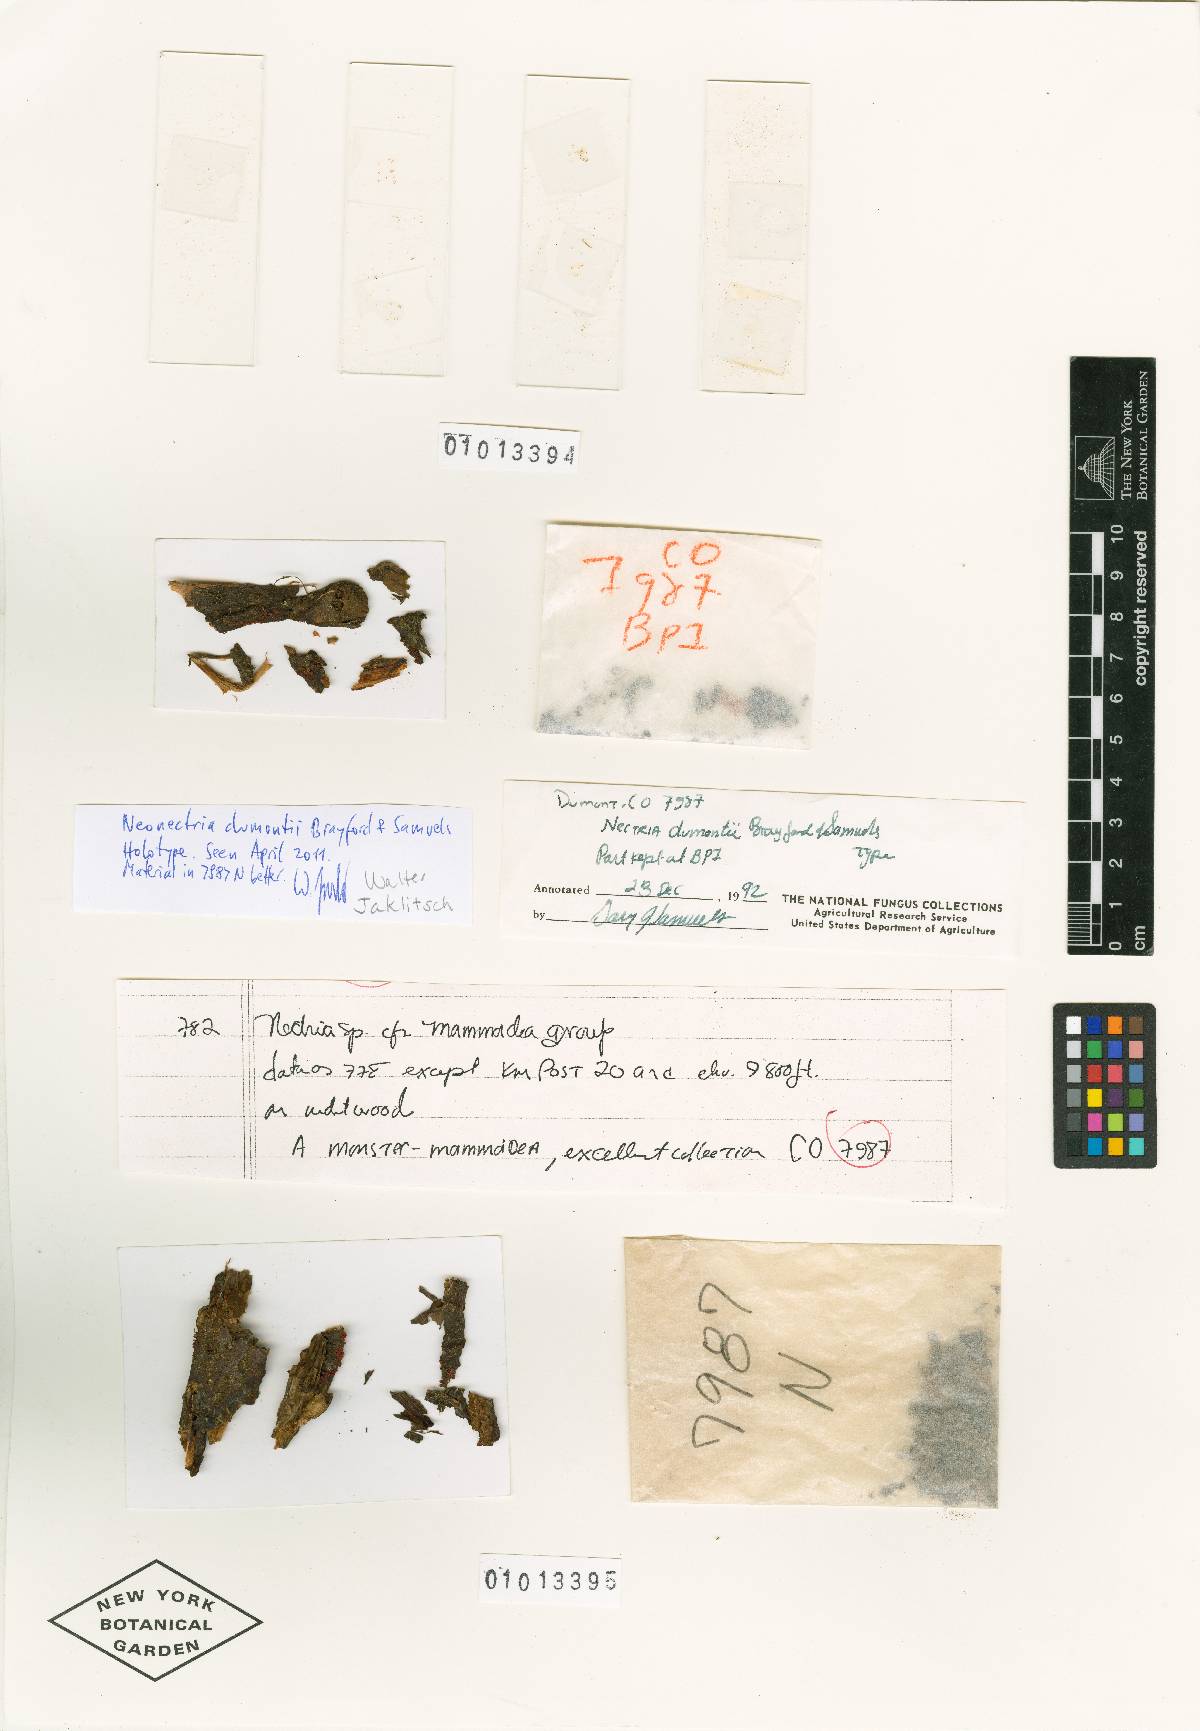 01013394
CO
7987
BPI
Neonectria dumontii Brayford & Samuels
Holotype. Seen April 2011.
Material in 7987 N better.
Walter
Jaklitsch
Dumont-CO 7987
Nectria dumontii Brayford & Samuels
Type
Part kept at BPI
Annotated 23 Dec, 1992
by Gary J Samuels
THE NATIONAL FUNGUS COLLECTIONS
Agricultural Research Service
United States Department of Agriculture
782 Nectria sp. cfr mammoidea group
datos 778 except Km Post 20 and elev. 9800ft.
on wood
A monster-mammoidea, excellent collection CO 7987
7987
N
01013395
NEW YORK
BOTANICAL
GARDEN
THE NEW YORK
BOTANICAL GARDEN
0 1 2 3 4 5 6 7 8 9 10
cm
copyright reserved